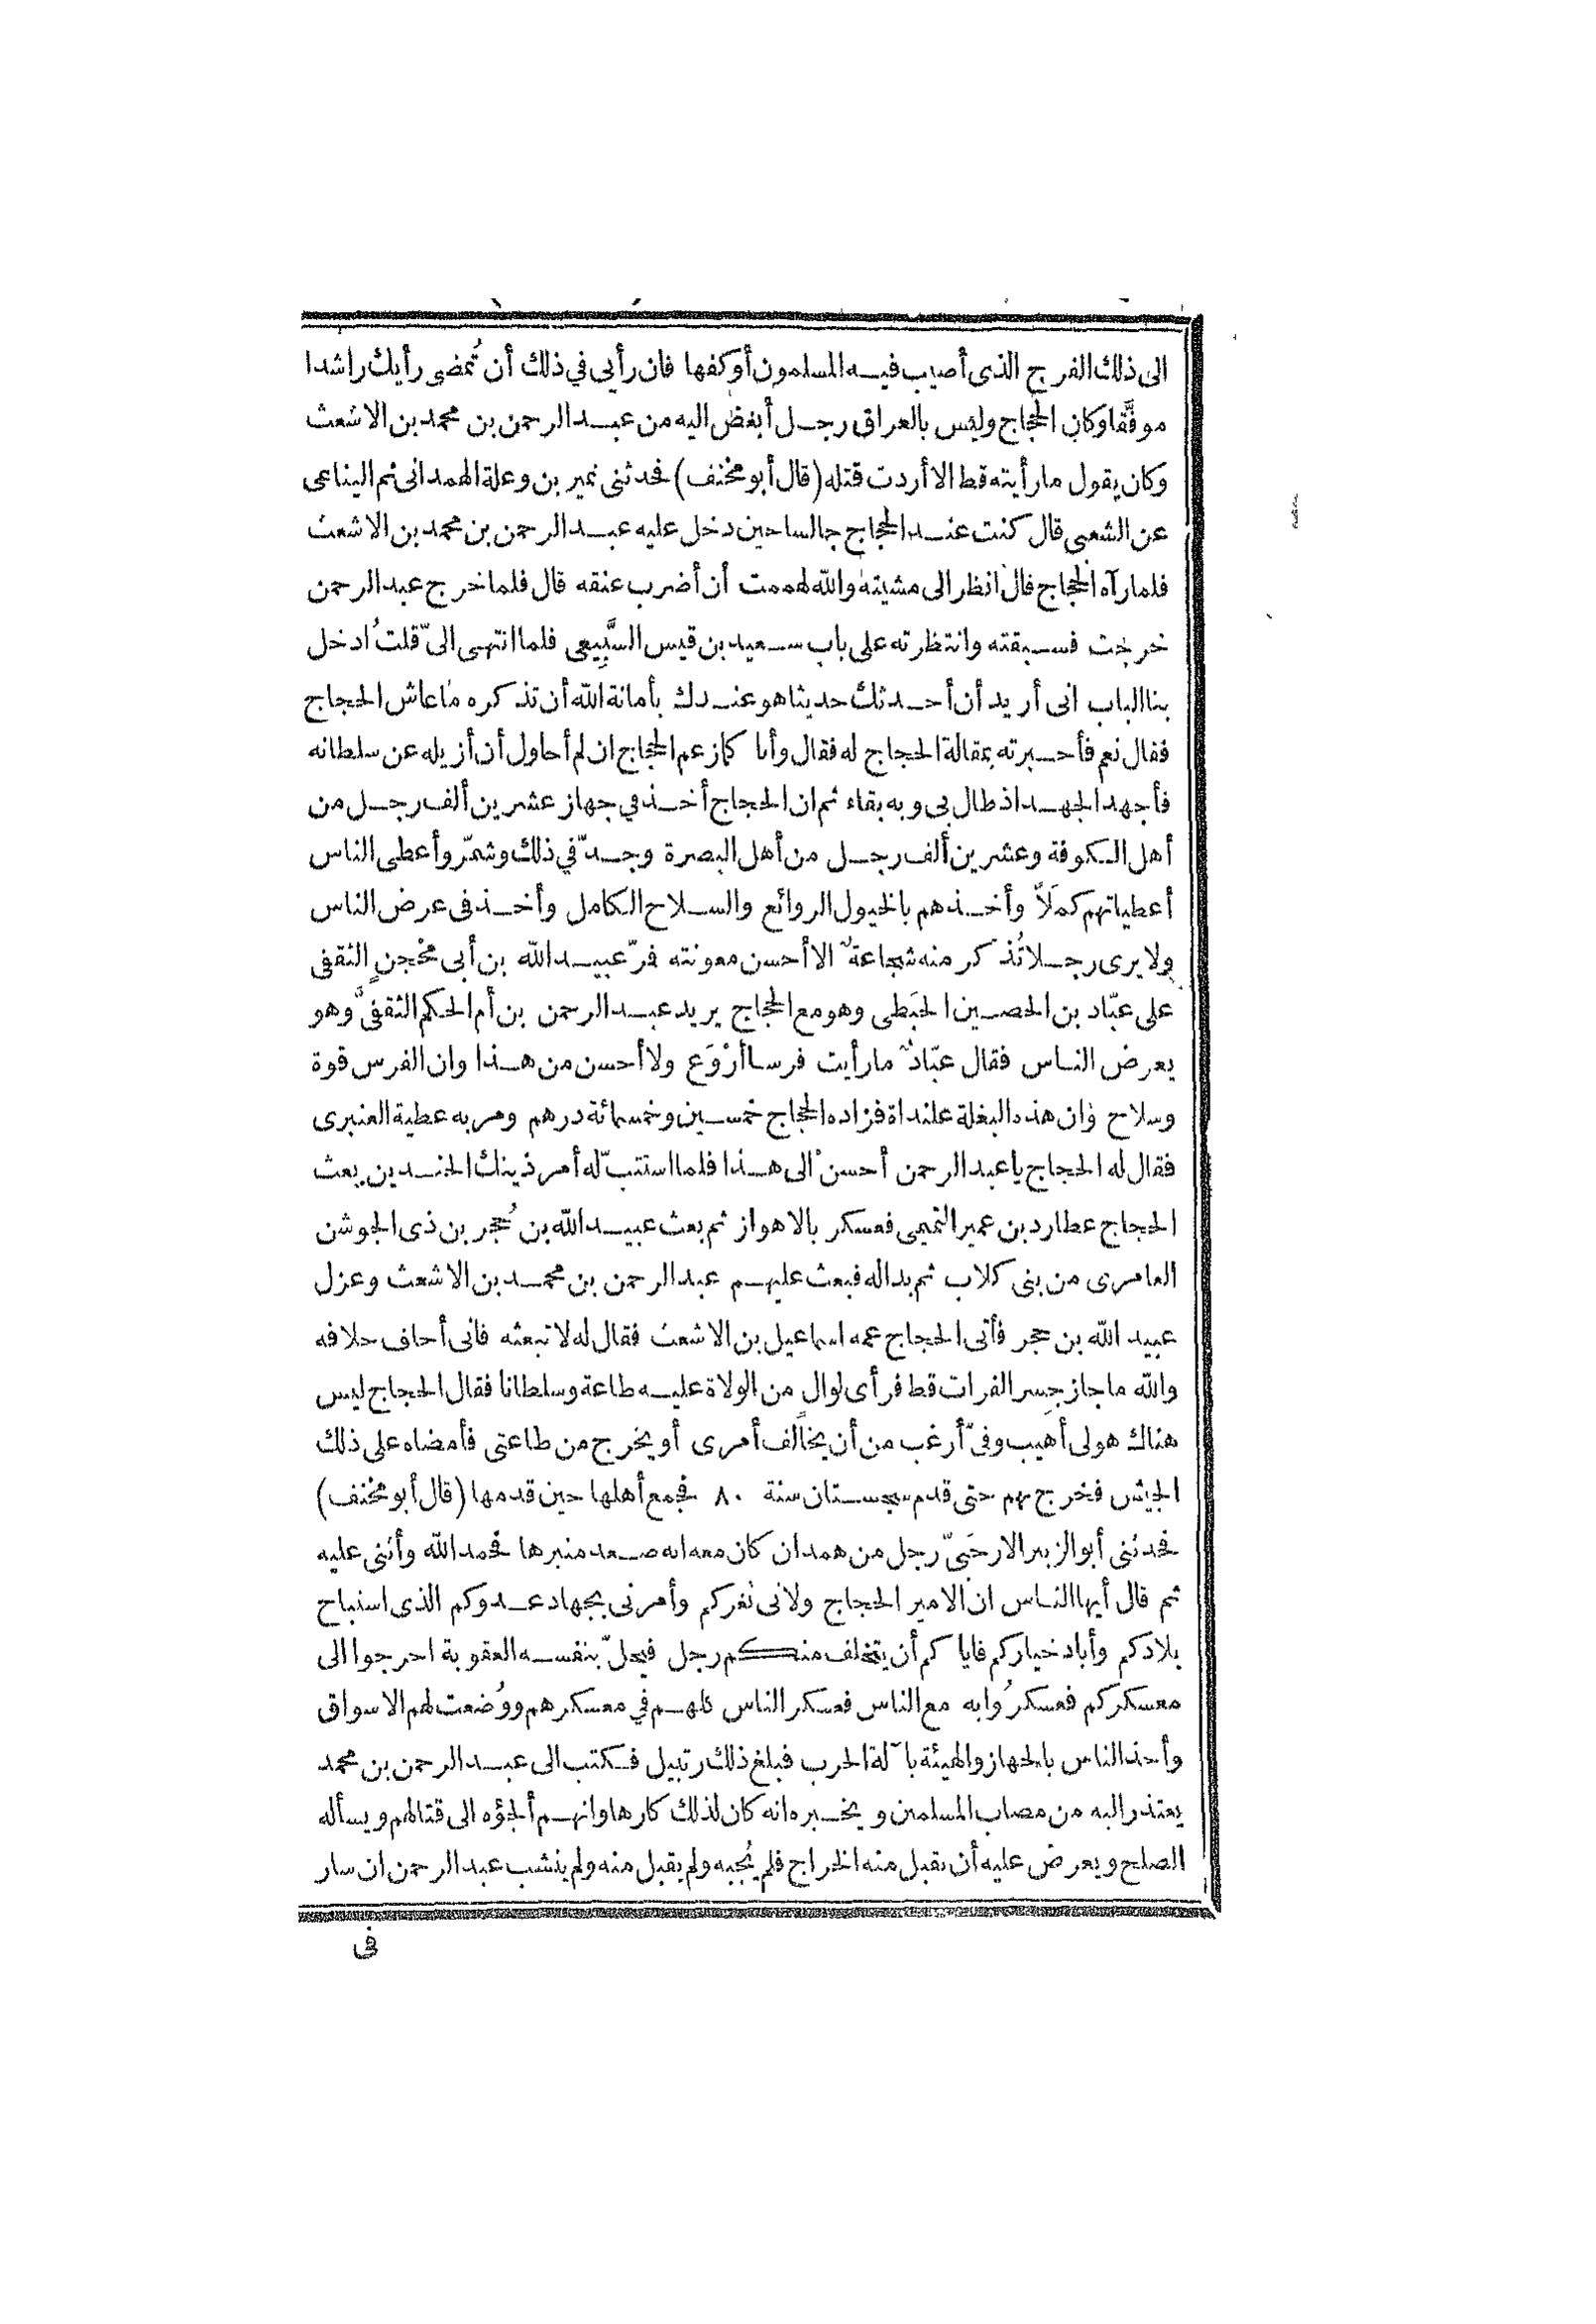 الى ذلك الفرج الذى أصيب فيه المسلمون أو كفها فان رأيى في ذلك أن تُمضى رأيك راشدا
موفَّقا وكان الحجاج وليس بالعراق رجل أبغض اليه من عبد الرحمن بن محمد بن الاشعث
وكان يقول ما رأيته قط الا أردت قتله (قال أبو مخنف) فحدثنى نمير بن وعلة الهمدانى ثم اليناعى
عن الشعبى قال كنت عند الحجاج جالسا حين دخل عليه عبد الرحمن بن محمد بن الاشعث
فلما رآه الحجاج قال انظر الى مشيته والله لهممت أن أضرب عنقه قال فلما خرج عبد الرحمن
خرجت فسبقته وانتظرته على باب سعيد بن قيس السَّبِيعى فلما انتهى الىّ قلت ادخل
بنا الباب انى أريد أن أحدثك حديثا هو عندك بأمانة الله أن تذكره ما عاش الحجاج
فقال نعم فأخبرته بمقالة الحجاج له فقال وأنا كما زعم الحجاج ان لم أحاول أن أزيله عن سلطانه
فأجهد الجهد اذ طال بى وبه بقاء ثم ان الحجاج أخذ في جهاز عشرين ألف رجل من
أهل الكوفة وعشرين ألف رجل من أهل البصرة وجدّ في ذلك وشمّر وأعطى الناس
أعطياتهم كمَلاً وأخذهم بالخيول الروائع والسلاح الكامل وأخذ فى عرض الناس
ولا يرى رجلا تُذكر منه شجاعةٌ الا أحسن معونته فمرّ عبيد الله بن أبى محْجنٍ الثقفى
على عبّاد بن الحصين الحَبَطى وهو مع الحجاج يريد عبد الرحمن بن أم الحكم الثقفىَّ وهو
يعرض الناس فقال عبّادٌ ما رأيت فرسا أرْوَع ولا أحسن من هذا وان الفرس قوة
وسلاح وان هذه البغلة علنداة فزاده الحجاج خمسين وخمسمائة درهم ومر به عطية العنبرى
فقال له الحجاج يا عبد الرحمن أحسنْ الى هذا فلما استتبّ له أمر ذينك الجندين بعث
الحجاج عطارد بن عمير التميمى فعسكر بالاهواز ثم بعث عبيد الله بن حُجر بن ذى الجوشن
العامرى من بنى كلاب ثم بدا له فبعث عليهم عبد الرحمن بن محمد بن الاشعث وعزل
عبيد الله بن حجر فأتى الحجاج عمه اسماعيل بن الاشعث فقال له لا تبعثه فانى أخاف خلافه
والله ما جاز جِسر الفرات قط فرأى لوالٍ من الولاة عليه طاعة وسلطانا فقال الحجاج ليس
هناك هو لى أهيب وفىّ أرغب من أن يخالف أمرى أو يخرج من طاعتى فأمضاه على ذلك
الجيش فخرج بهم حتى قدم سجستان سنة ٨٠ فجمع أهلها حين قدمها (قال أبو مخنف)
فحدثنى أبو الزبير الارحَبىّ رجل من همدان كان معه انه صعد منبرها فحمد الله وأثنى عليه
ثم قال أيها الناس ان الامير الحجاج ولانى ثغركم وأمرنى بجهاد عدوكم الذى استباح
بلادكم وأباد خياركم فاياكم أن يتخلف منكم رجل فيحلّ بنفسه العقوبة اخرجوا الى
معسكركم فعسكرُوا به مع الناس فعسكر الناس كلهم في معسكرهم ووُضعت لهم الاسواق
وأخذ الناس بالجهاز والهيئة بآلة الحرب فبلغ ذلك رتبيل فكتب الى عبد الرحمن بن محمد
يعتذر اليه من مصاب المسلمين ويخبره انه كان لذلك كارها وانهم ألجؤه الى قتالهم ويسأله
الصلح ويعرض عليه أن يقبل منه الخراج فلم يُجبه ولم يقبل منه ولم ينشب عبد الرحمن ان سار
فى